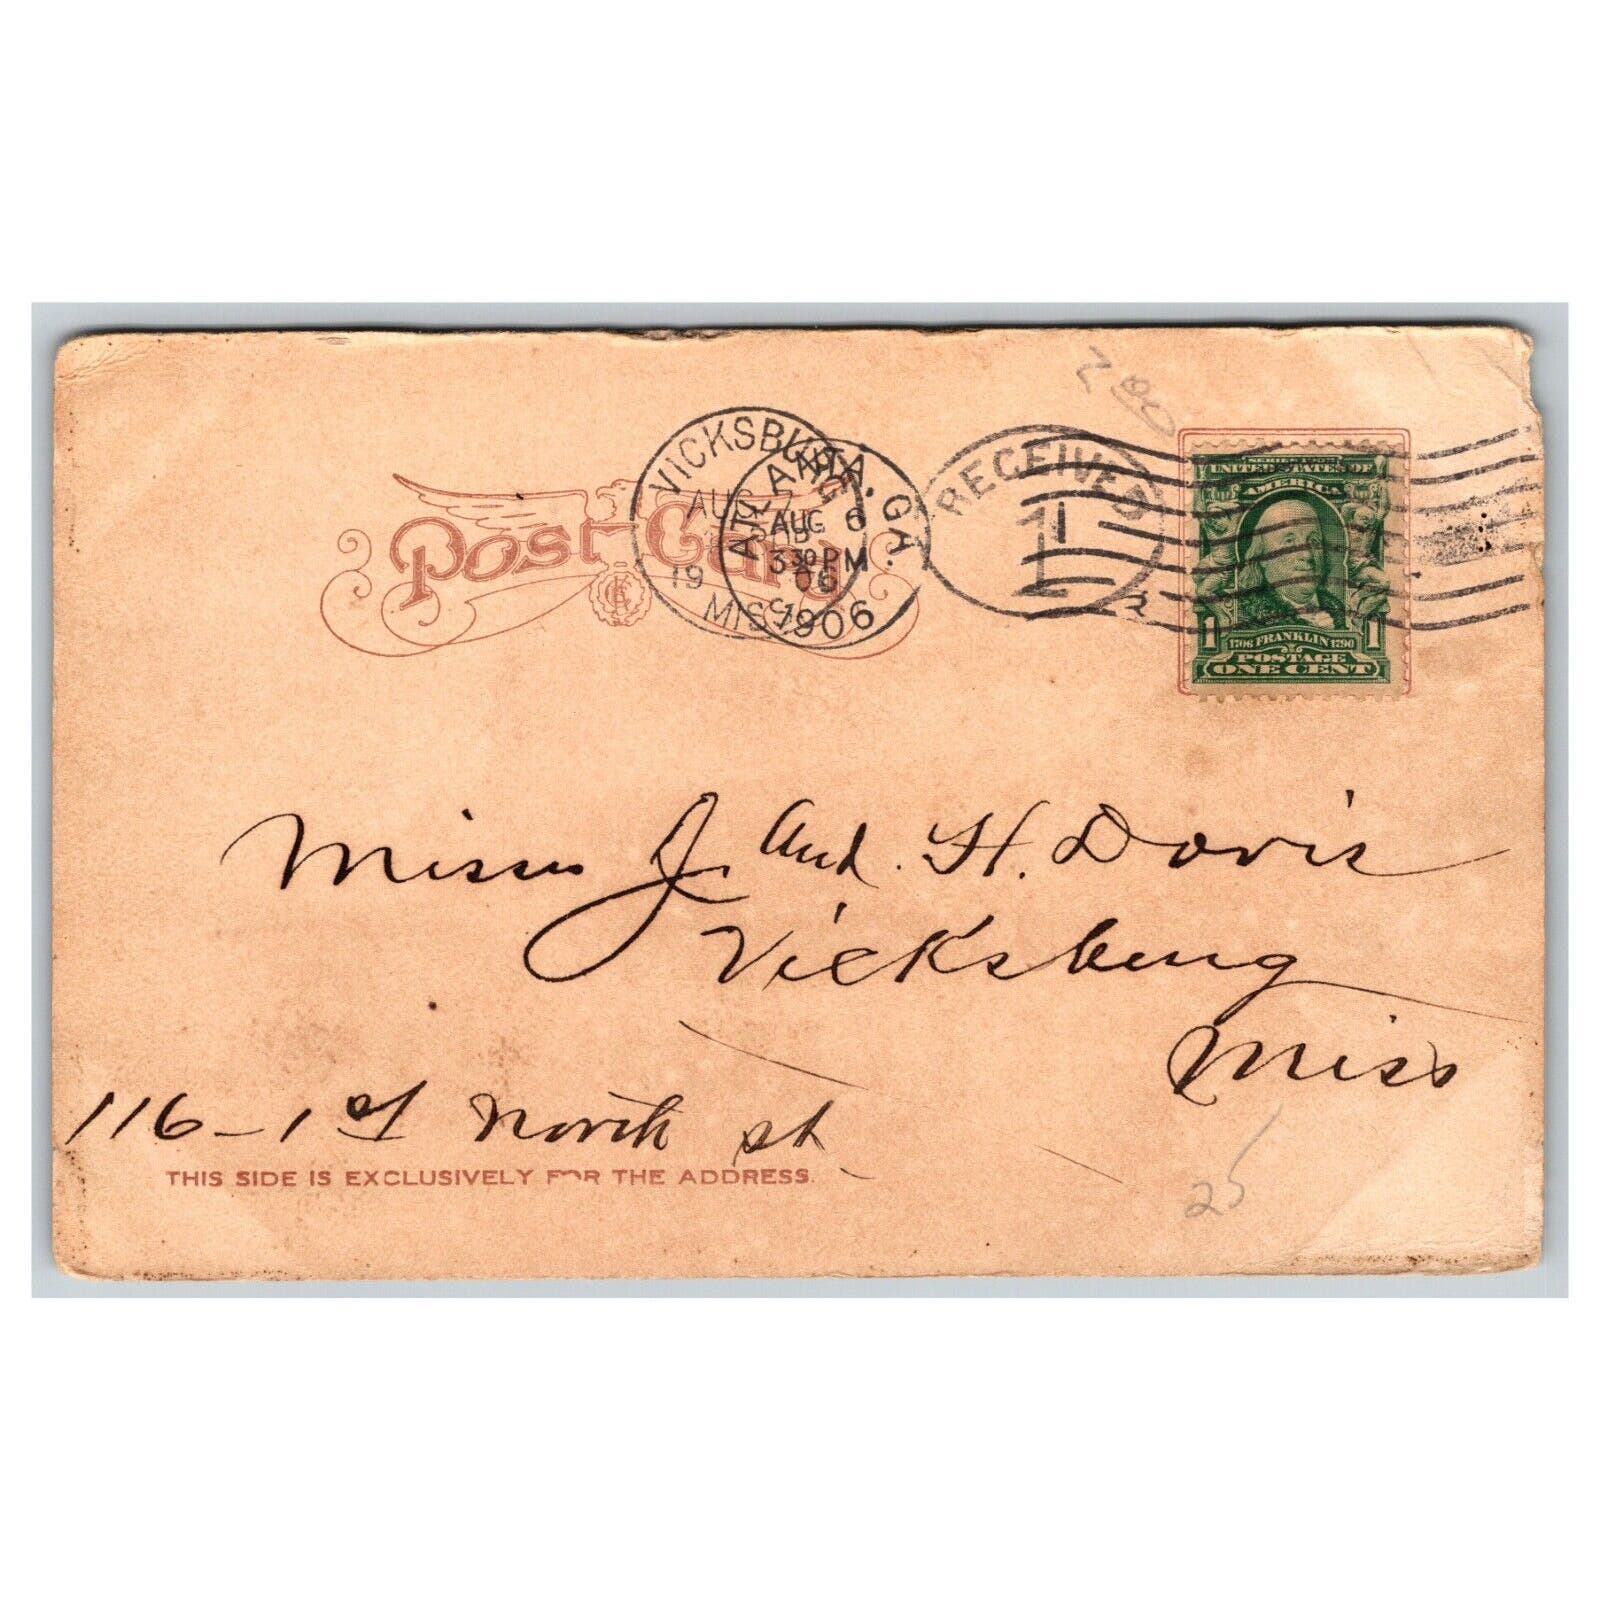 2.00
VICKSBURG
AUG 7
19 06
MISS.
ATLANTA, GA.
AUG 6
3 30 PM
1906
RECEIVED
1
Post Card
SERIES 1902
UNITED STATES OF
AMERICA
1 1706 FRANKLIN 1790 1
POSTAGE
ONE CENT
Misses J. and. H. Davis
Vicksburg
Miss
116 - 1st North St
THIS SIDE IS EXCLUSIVELY FOR THE ADDRESS.
25